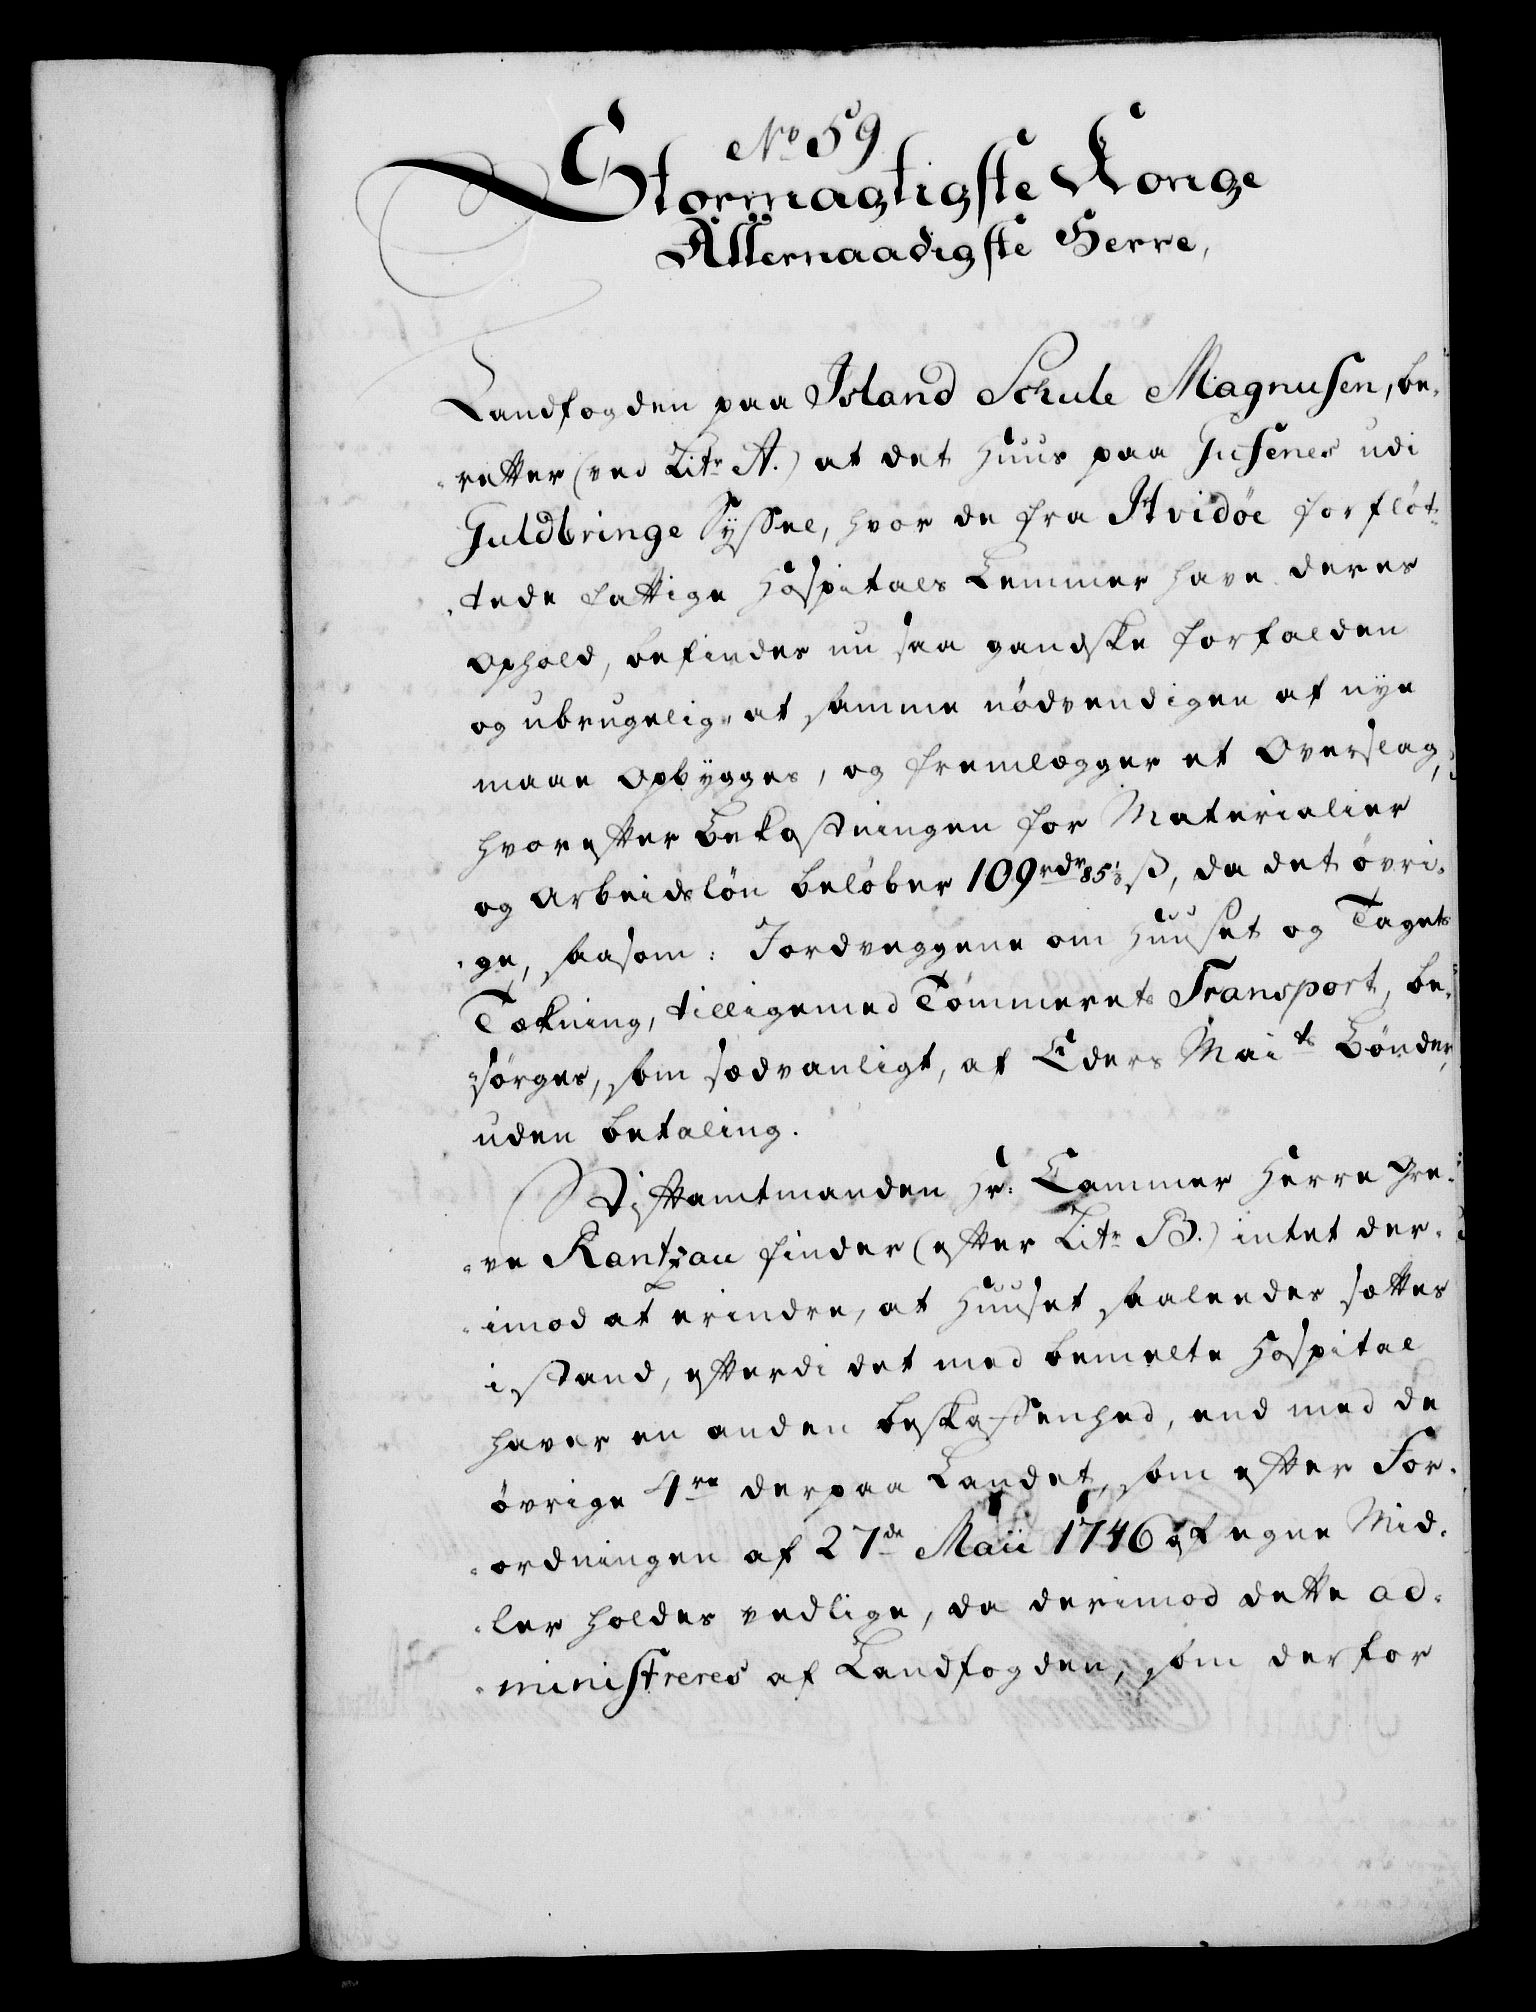 No 59
Stormagtigste Konge
Allernaadigste Herre,
Landfogden paa Island Schule Magnusen, be-
retter (ved Litr A.) at det Huus paa Gufenes udi
Guldbringe Syssel, hvor de fra Hvidöe forflöt-
tede fattige Hospitals Lemmer have deres
Ophold, befindes nu saa gandske forfalden
og ubrugelig, at samme nödvendigen af nye
maae opbygges, og fremlegger et Overslag,
hvorefter Bekostningen for Materialier
og Arbeidslön belöber 109 rdr 85 ß, da det övri-
ge, saasom: Jordveggene om Huuset og Tagets
Tækning, tilligemed Tömmerets Transport, be-
sörges, som sædvanligt, af Eders Maits Bönder,
uden betaling.
Stiftamtmanden Hr: Cammer Herre Gre-
ve Rantzau finder (efter Litr B.) intet der-
imod at erindre, at Huuset saaledes sættes
i stand, efterdi det med bemelte Hospital
haver en anden beskaffenhed, end med de
övrige 4re der paa Landet, som efter For-
ordningen af 27de Maii 1746 af egne Mid-
ler holdes vedlige, da derimod dette ad-
ministreres af Landfogden, som derfor